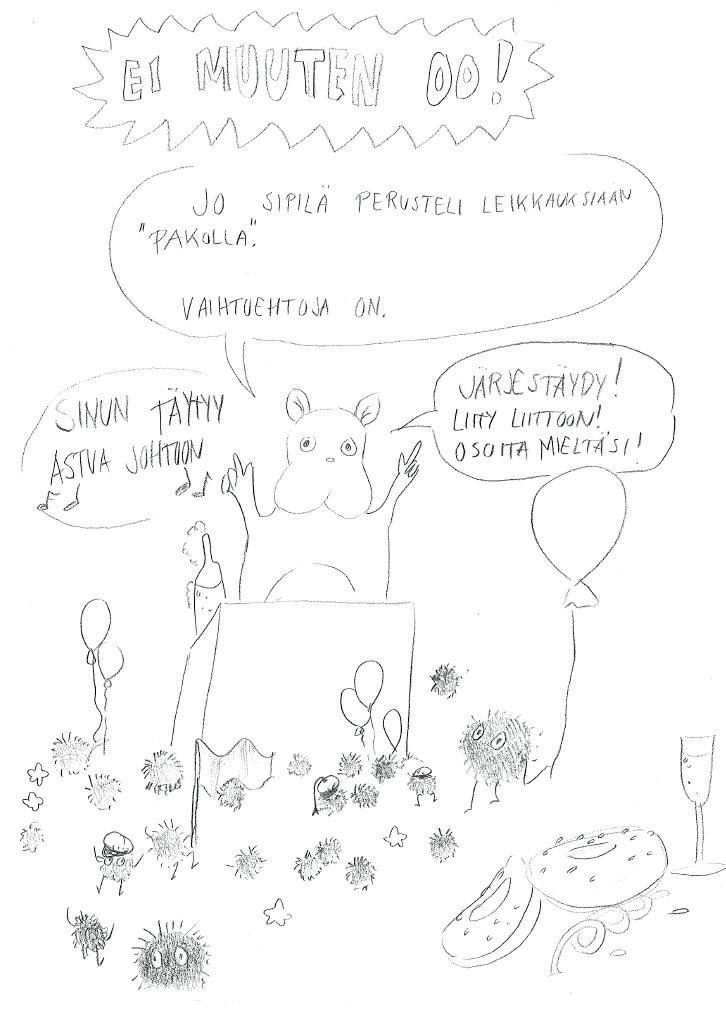 EI MUUTEN OO!
JO SIPILÄ PERUSTELI LEIKKAUKSIAAN
"PAKOLLA".
VAIHTOEHTOJA ON.
SINUN TÄYTYY
ASTUA JOHTOON
JÄRJESTÄYDY!
LIITY LIITTOON!
OSOITA MIELTÄSI!